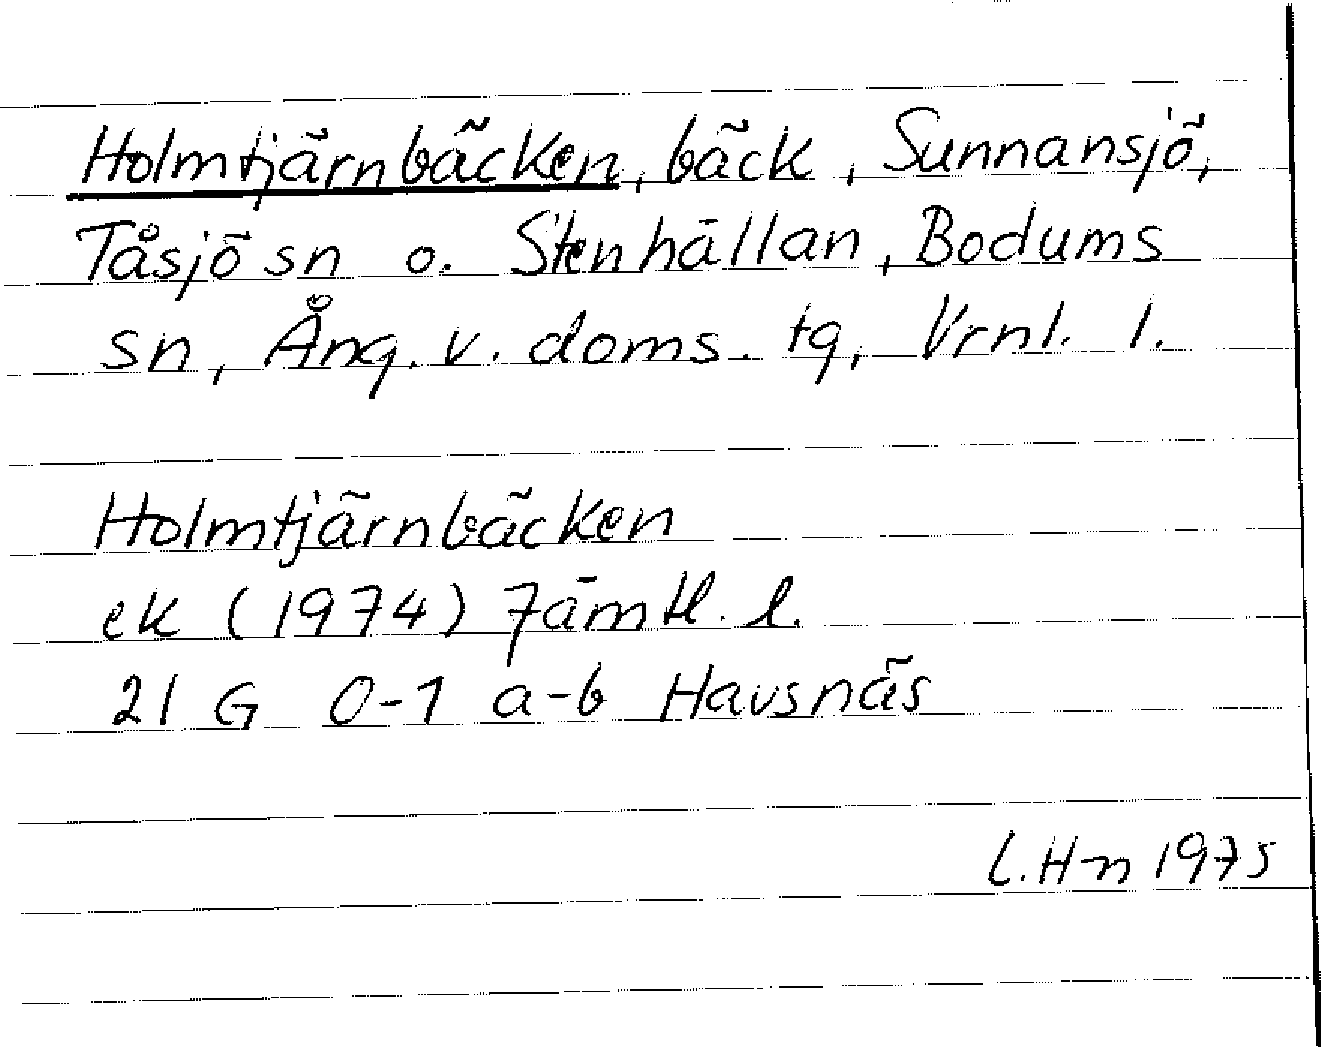 Holmtjärnbäcken, bäck, Sunnansjö,
Tåsjö sn o. Stenhällan, Bodums
sn, Ång. v. doms. tg, Vrnl. l.
Holmtjärnbäcken
ek (1974) Jämtl. l.
21 G 0-1 a-b Havsnäs
L.H-n 1975